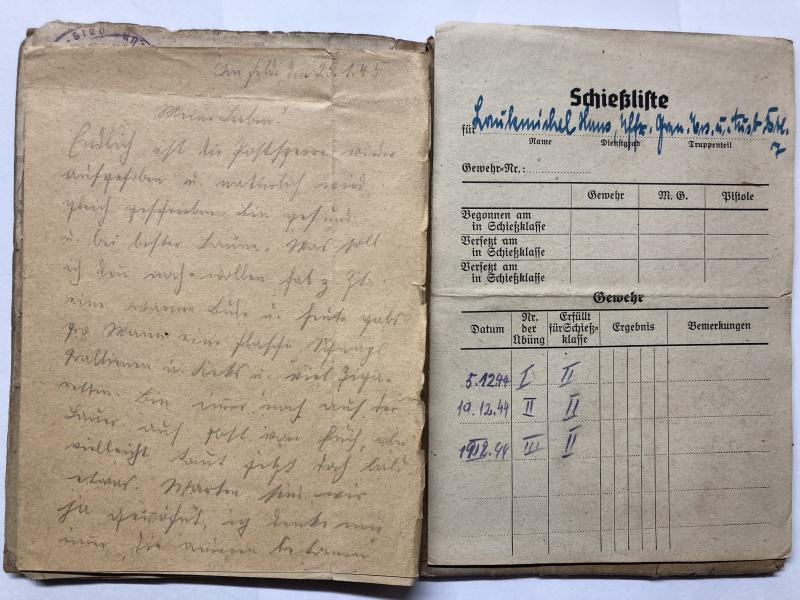 Im Felde, den 25.1.45
Meine Lieben!
Endlich ist die Postsperre wieder
aufgehoben u. natürlich wird
gleich geschrieben. Bin gesund
u. bei bester Laune. Was soll
ich den noch wollen hab z. Zt.
eine warme Bude u. heute gabs
pro Mann eine Flasche Schnaps
u. Keks u. viel Ziga-
retten. Bin immer noch auf der
Lauer auf Post von Euch, aber
vielleicht kommt jetzt doch bald
etwas. Warten sind wir
ja gewöhnt, ich denke mir
immer, die
Schießliste
für Laukmichel Hans, Uffz. Gren. Ers. u. Ausb. Btl.
7
Name Dienstgrad Truppenteil
Gewehr-Nr.:
Gewehr M. G. Pistole
Begonnen am
in Schießklasse
Versetzt am
in Schießklasse
Versetzt am
in Schießklasse
Gewehr
Datum Nr. der Übung Erfüllt für Schieß-klasse Ergebnis Bemerkungen
5.12.44 I II
19.12.44 II II
19.12.44 III II